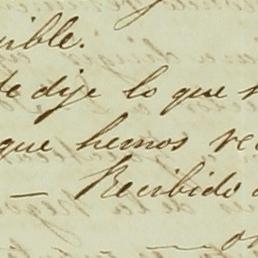 ible.
te dije lo que
que hemos re
— Recibido